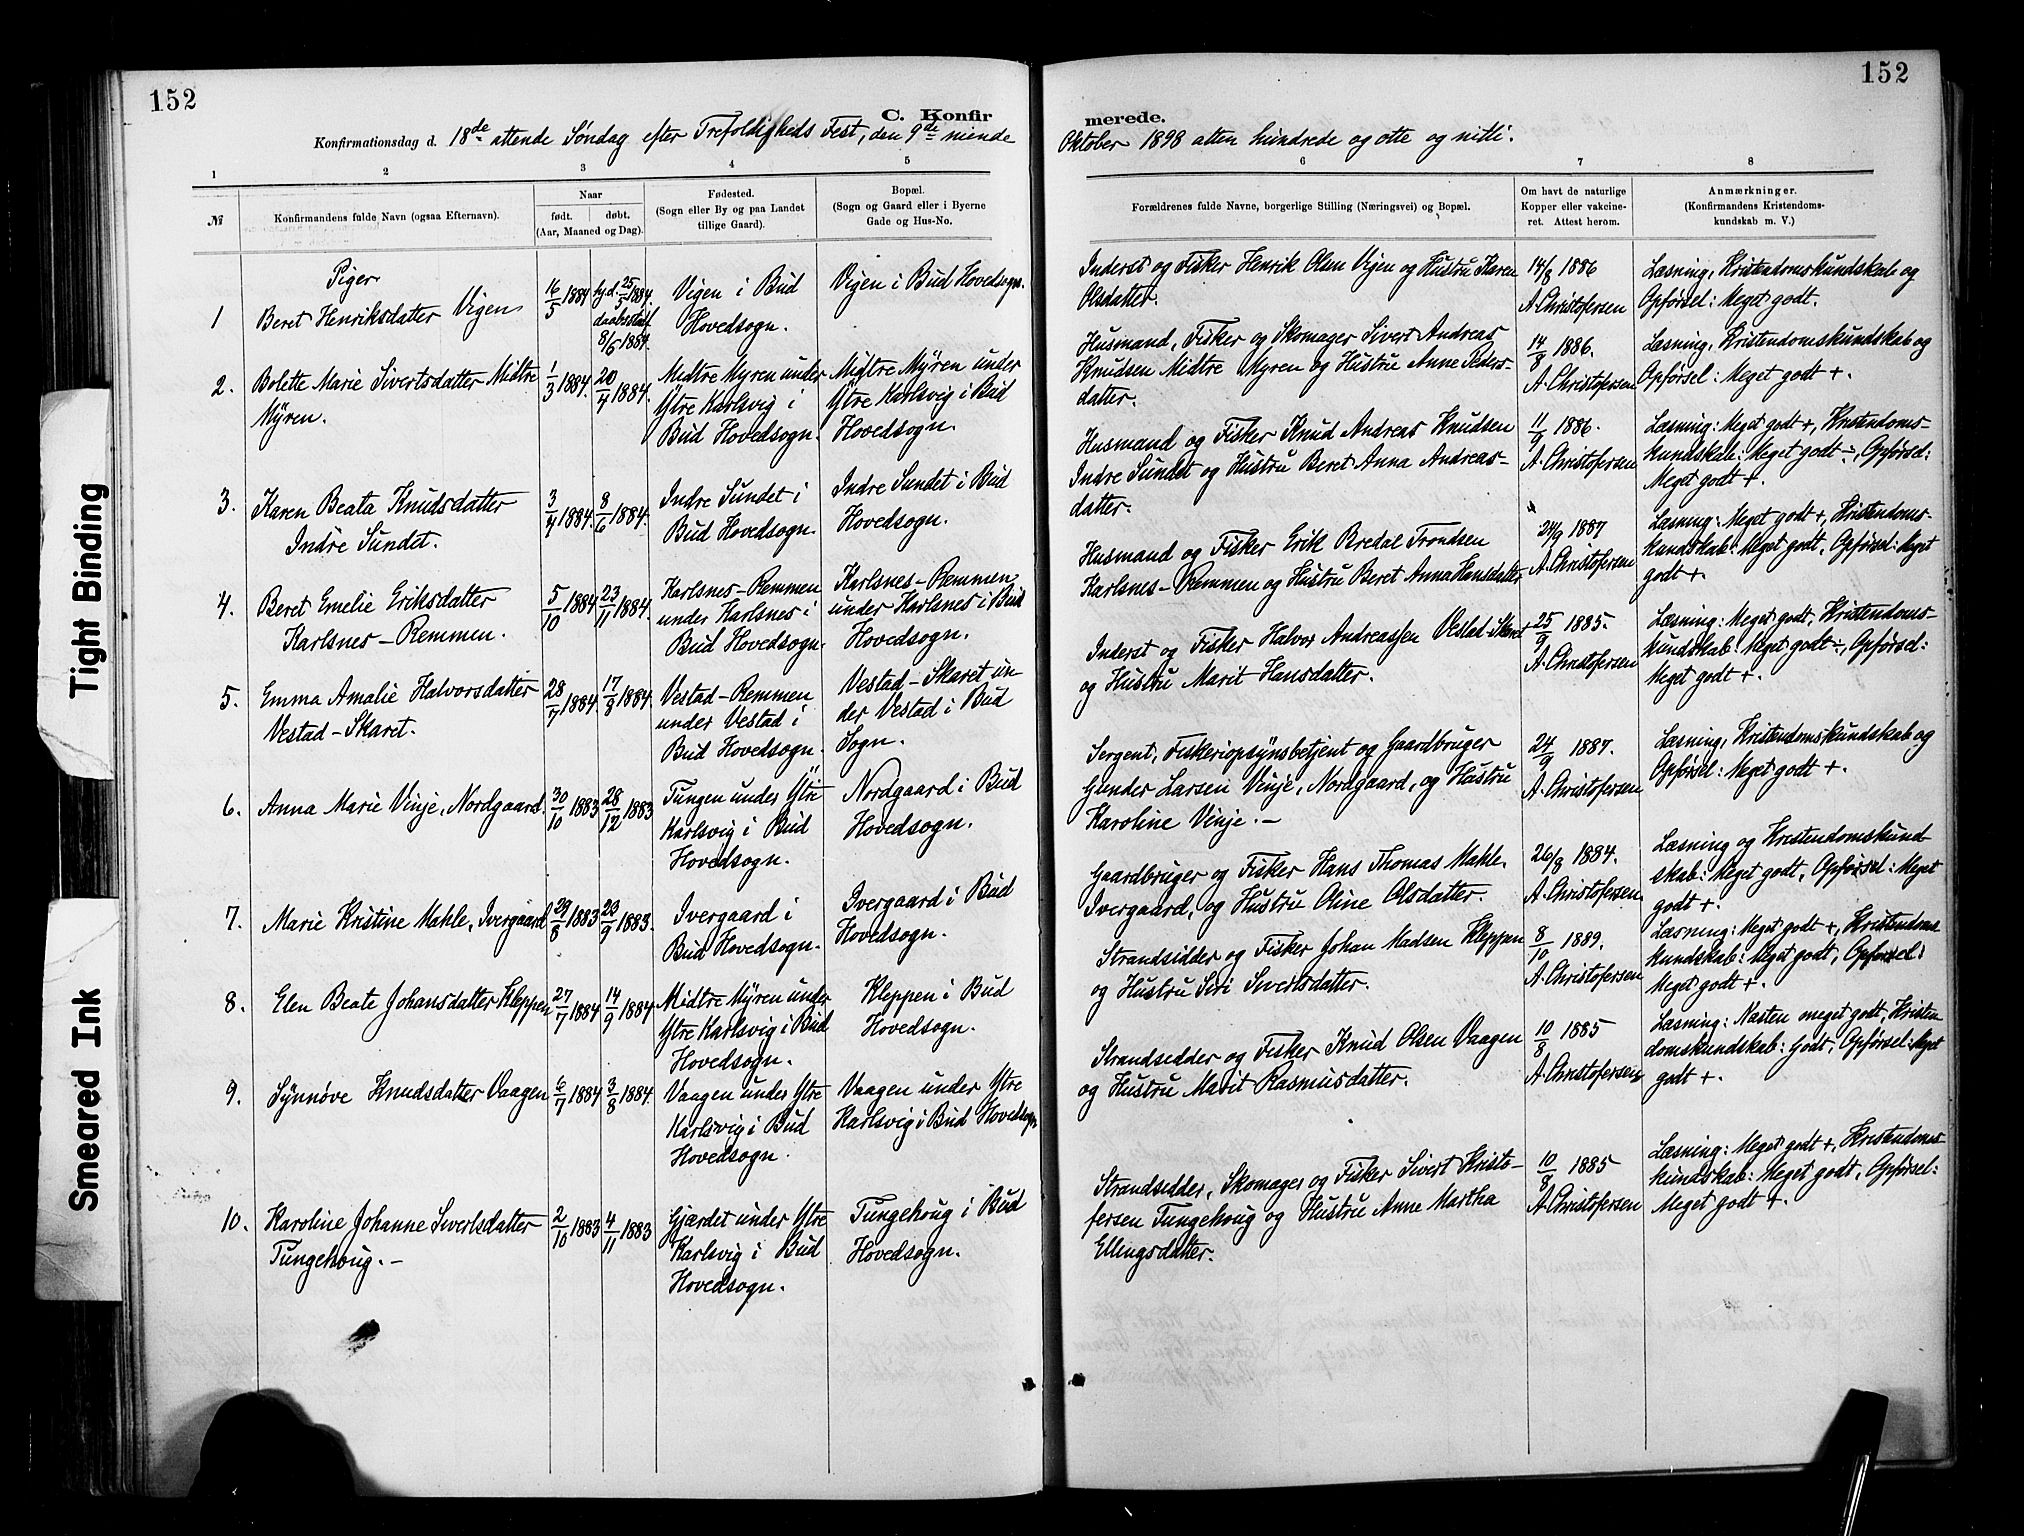 152
C. Konfir
Konfirmationsdag d. 18de attende Søndag efter Trefoldigheds Fest, den 9de niende
1 2 3 4 5
№ Konfirmandens fulde Navn (ogsaa Efternavn). Naar født. døbt. (Aar, Maaned og Dag). Fødested. (Sogn eller By og paa Landet tillige Gaard). Bopæl. (Sogn og Gaard eller i Byerne Gade og Hus-No.
Piger
1 Beret Henriksdatter Vigen 16/5 1884 hjd. 25/5 1884. daabsstadf. 8/6 1884. Vigen i Bud Hovedsogn. Vigen i Bud Hovedsogn.
2. Bolette Marie Sivertsdatter Midtre Myren. 1/3 1884. 20/4 1884. Midtre Myren under Ytre Karlsvig i Bud Hovedsogn. Midtre Myren under Ytre Karlsvig i Bud Hovedsogn.
3. Karen Beata Knudsdatter Indre Sundet. 3/4 1884. 8/6 1884. Indre Sundet i Bud Hovedsogn. Indre Sundet i Bud Hovedsogn.
4. Beret Emelie Eriksdatter Karlsnes-Remmen. 5/10 1884 23/11 1884. Karlsnes-Remmen under Karlsnes i Bud Hovedsogn. Karlsnes-Remmen under Karlsnes i Bud Hovedsogn.
5. Emma Amalie Halvorsdatter Vestad-Skaret. 28/7 1884. 17/8 1884. Vestad-Remmen under Vestad i Bud Hovedsogn. Vestad-Skaret under Vestad i Bud Sogn.
6. Anna Marie Vinje, Nordgaard. 30/10 1883 28/12 1883 Tungen under Ytre Karlsvig i Bud Hovedsogn. Nordgaard i Bud Hovedsogn.
7. Marie Kristine Mahle, Ivergaard 29/8 1883 23/9 1883. Ivergaard i Bud Hovedsogn. Ivergaard i Bud Hovedsogn.
8. Elen Beate Johansdatter Kleppen 27/7 1884 14/9 1884 Midtre Myren under Ytre Karlsvig i Bud Hovedsogn. Kleppen i Bud Hovedsogn.
9. Synnøve Knudsdatter Vaagen 6/7 1884 3/8 1884. Vaagen under Ytre Karlsvig i Bud Hovedsogn. Vaagen under Ytre Karlsvig i Bud Hovedsogn
10. Karoline Johanne Sivertsdatter Tungehoug.- 2/10 1883 4/11 1883 Gjærdet under Ytre Karlsvig i Bud Hovedsogn. Tungehoug i Bud Hovedsogn.
152
merede.
Oktober 1898 atten hundrede og otte og nitti.
6 7 8
Forældrenes fulde Navne, borgerlige Stilling (Næringsvei) og Bopæl. Om havt de naturlige Kopper eller vakcineret. Attest herom. Anmærkninger. (Konfirmandens Kristendomskundskab m. V.)
Inderst og Fisker Henrik Olsen Vigen og Hustru Karen Olsdatter. 14/8 1886 A. Christofersen Læsning, Kristendomskundskab og Opførsel: Meget godt.
Husmand, Fisker og Skomager Sivert Andreas Knudsen Midtre Myren og Hustru Anne Pedersdatter. 14/8 1886. A. Christofersen Læsning, Kristendomskundskab og Opførsel: Meget godt +.
Husmand og Fisker Knud Andreas Knudsen Indre Sundet og Hustru Beret Anna Andreasdatter. 11/9 1886. A. Christofersen Læsning: Meget godt +, Kristendomskundskab: Meget godt ÷, Opførsel: Meget godt +.
Husmand og Fisker Erik Bredal Trondsen Karlsnes-Remmen og Hustru Beret Anna Hansdatter 24/9 1887 A. Christofersen Læsning: Meget godt +, Kristendomskundskab: Meget godt, Opførsel: Meget godt +.
Inderst og Fisker Halvor Andreassen Vestad-Skaret og Hustru Marit Hansdatter. 25/9 1885. A. Christofersen Læsning: Meget godt, Kristendomskundskab: Meget godt ÷, Opførsel: Meget godt +.
Sergent, Fiskeriopsynsbetjent og Gaardbruger Gunder Larsen Vinje, Nordgaard, og Hustru Karoline Vinje.- 24/9 1887. A. Christofersen Læsning, Kristendomskundskab og Opførsel: Meget godt +.
Gaardbruger og Fisker Hans Thomas Mahle, Ivergaard, og Hustru Oline Olsdatter. 26/8 1884. A. Christofersen Læsning og Kristendomskundskab: Meget godt, Opførsel: Meget godt +.
Strandsidder og Fisker Johan Madsen Kleppen og Hustru Siri Sivertsdatter. 8/10 1889. A. Christofersen Læsning: Meget godt +, Kristendomskundskab: Meget godt, Opførsel: Meget godt +.
Strandsedder og Fisker Knud Olsen Vaagen og Hustru Marit Rasmusdatter. 10/8 1885 A. Christofersen Læsning: Næsten meget godt, Kristendomskundskab: Godt, Opførsel: Meget godt +.
Strandsedder, Skomager og Fisker Sivert Kristofersen Tungehoug og Hustru Anne Martha Ellingsdatter. 10/8 1885 A. Christofersen Læsning: Meget godt +, Kristendomskundskab: Meget godt, Opførsel: Meget godt +.
Tight Binding
Smeared Ink